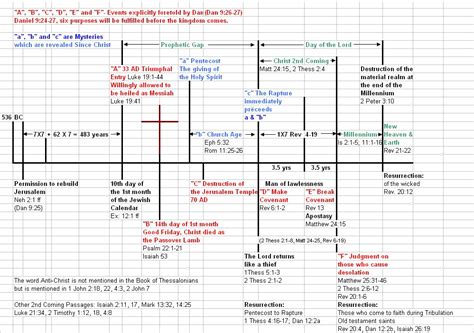 "A", "B", "C", "D", "E" and "F"- Events explicitly foretold by Dan (Dan 9:26-27)
Daniel 9:24-27, six purposes will be fulfilled before the kingdom comes.
"a", "b" and "c" are Mysteries
which are revealed Since Christ
Prophetic Gap
Day of the Lord
"A" 33 AD Triumphal
Entry Luke 19:1-44
Willingly allowed to
be heiled as Messiah
Luke 19:41
"a" Pentecost
The giving of
the Holy Spirit
Christ 2nd Coming
Matt 24:15, 2 Thess 2:4
"c" The Rapture
immediately
proceeds
a & "b"
Destruction of the
material realm at
the end of the
Millennium
2 Peter 3:10
536 BC
7X7 + 62 X 7 = 483 years
"b" Church Age
Eph 5:32
Rom 11:25-26
1X7 Rev 4-19
Millennium
Is 2:1-5, 11:1-16
New
Heaven &
Earth
Rev 21-22
3.5 yrs
3.5 yrs
Permission to rebuild
Jerusalem
Neh 2:1 ff
(Dan 9:25)
10th day of
the 1st month
of the Jewish
Calendar
Ex: 12:1 ff
"C" Destruction of
the Jerusalem Temple
70 AD
Man of lawlessness
"D" Make
Covenant
Rev 6:1-2
"E" Break
Covenant
Rev 13
Apostasy
Matt 24:15
Resurrection:
of the wicked
Rev. 20:12
"B" 14th day of 1st month
Good Friday, Christ died as
the Passover Lamb
Psalm 22:1-21
Isaiah 53
(2 Thess 2:1-8, Matt 24-25, Rev 6-19)
The Lord returns
like a thief
1 Thess 5:1-3
2 Thess 2:1-2
"F" Judgment on
those who cause
desolation
Matthew 25:31-46
2 Thess 2:6-12
Rev 20:1-6
The word Anti-Christ is not mentioned in the Book of Thessalonians
but is mentioned in 1 John 2:18, 22, 4:3, 2 John 7
Other 2nd Coming Passages: Isaiah 2:11, 17, Mark 13:32, 14:25
Luke 21:34, 2 Timothy 1:12, 18, 4:8
Resurrection:
Pentecost to Rapture
1 Thess 4:16-17, Dan 12:2a
Resurrection:
Those who come to faith during Tribulation
Old testament saints
Rev 20:4, Dan 12:2b, Isaiah 26:19